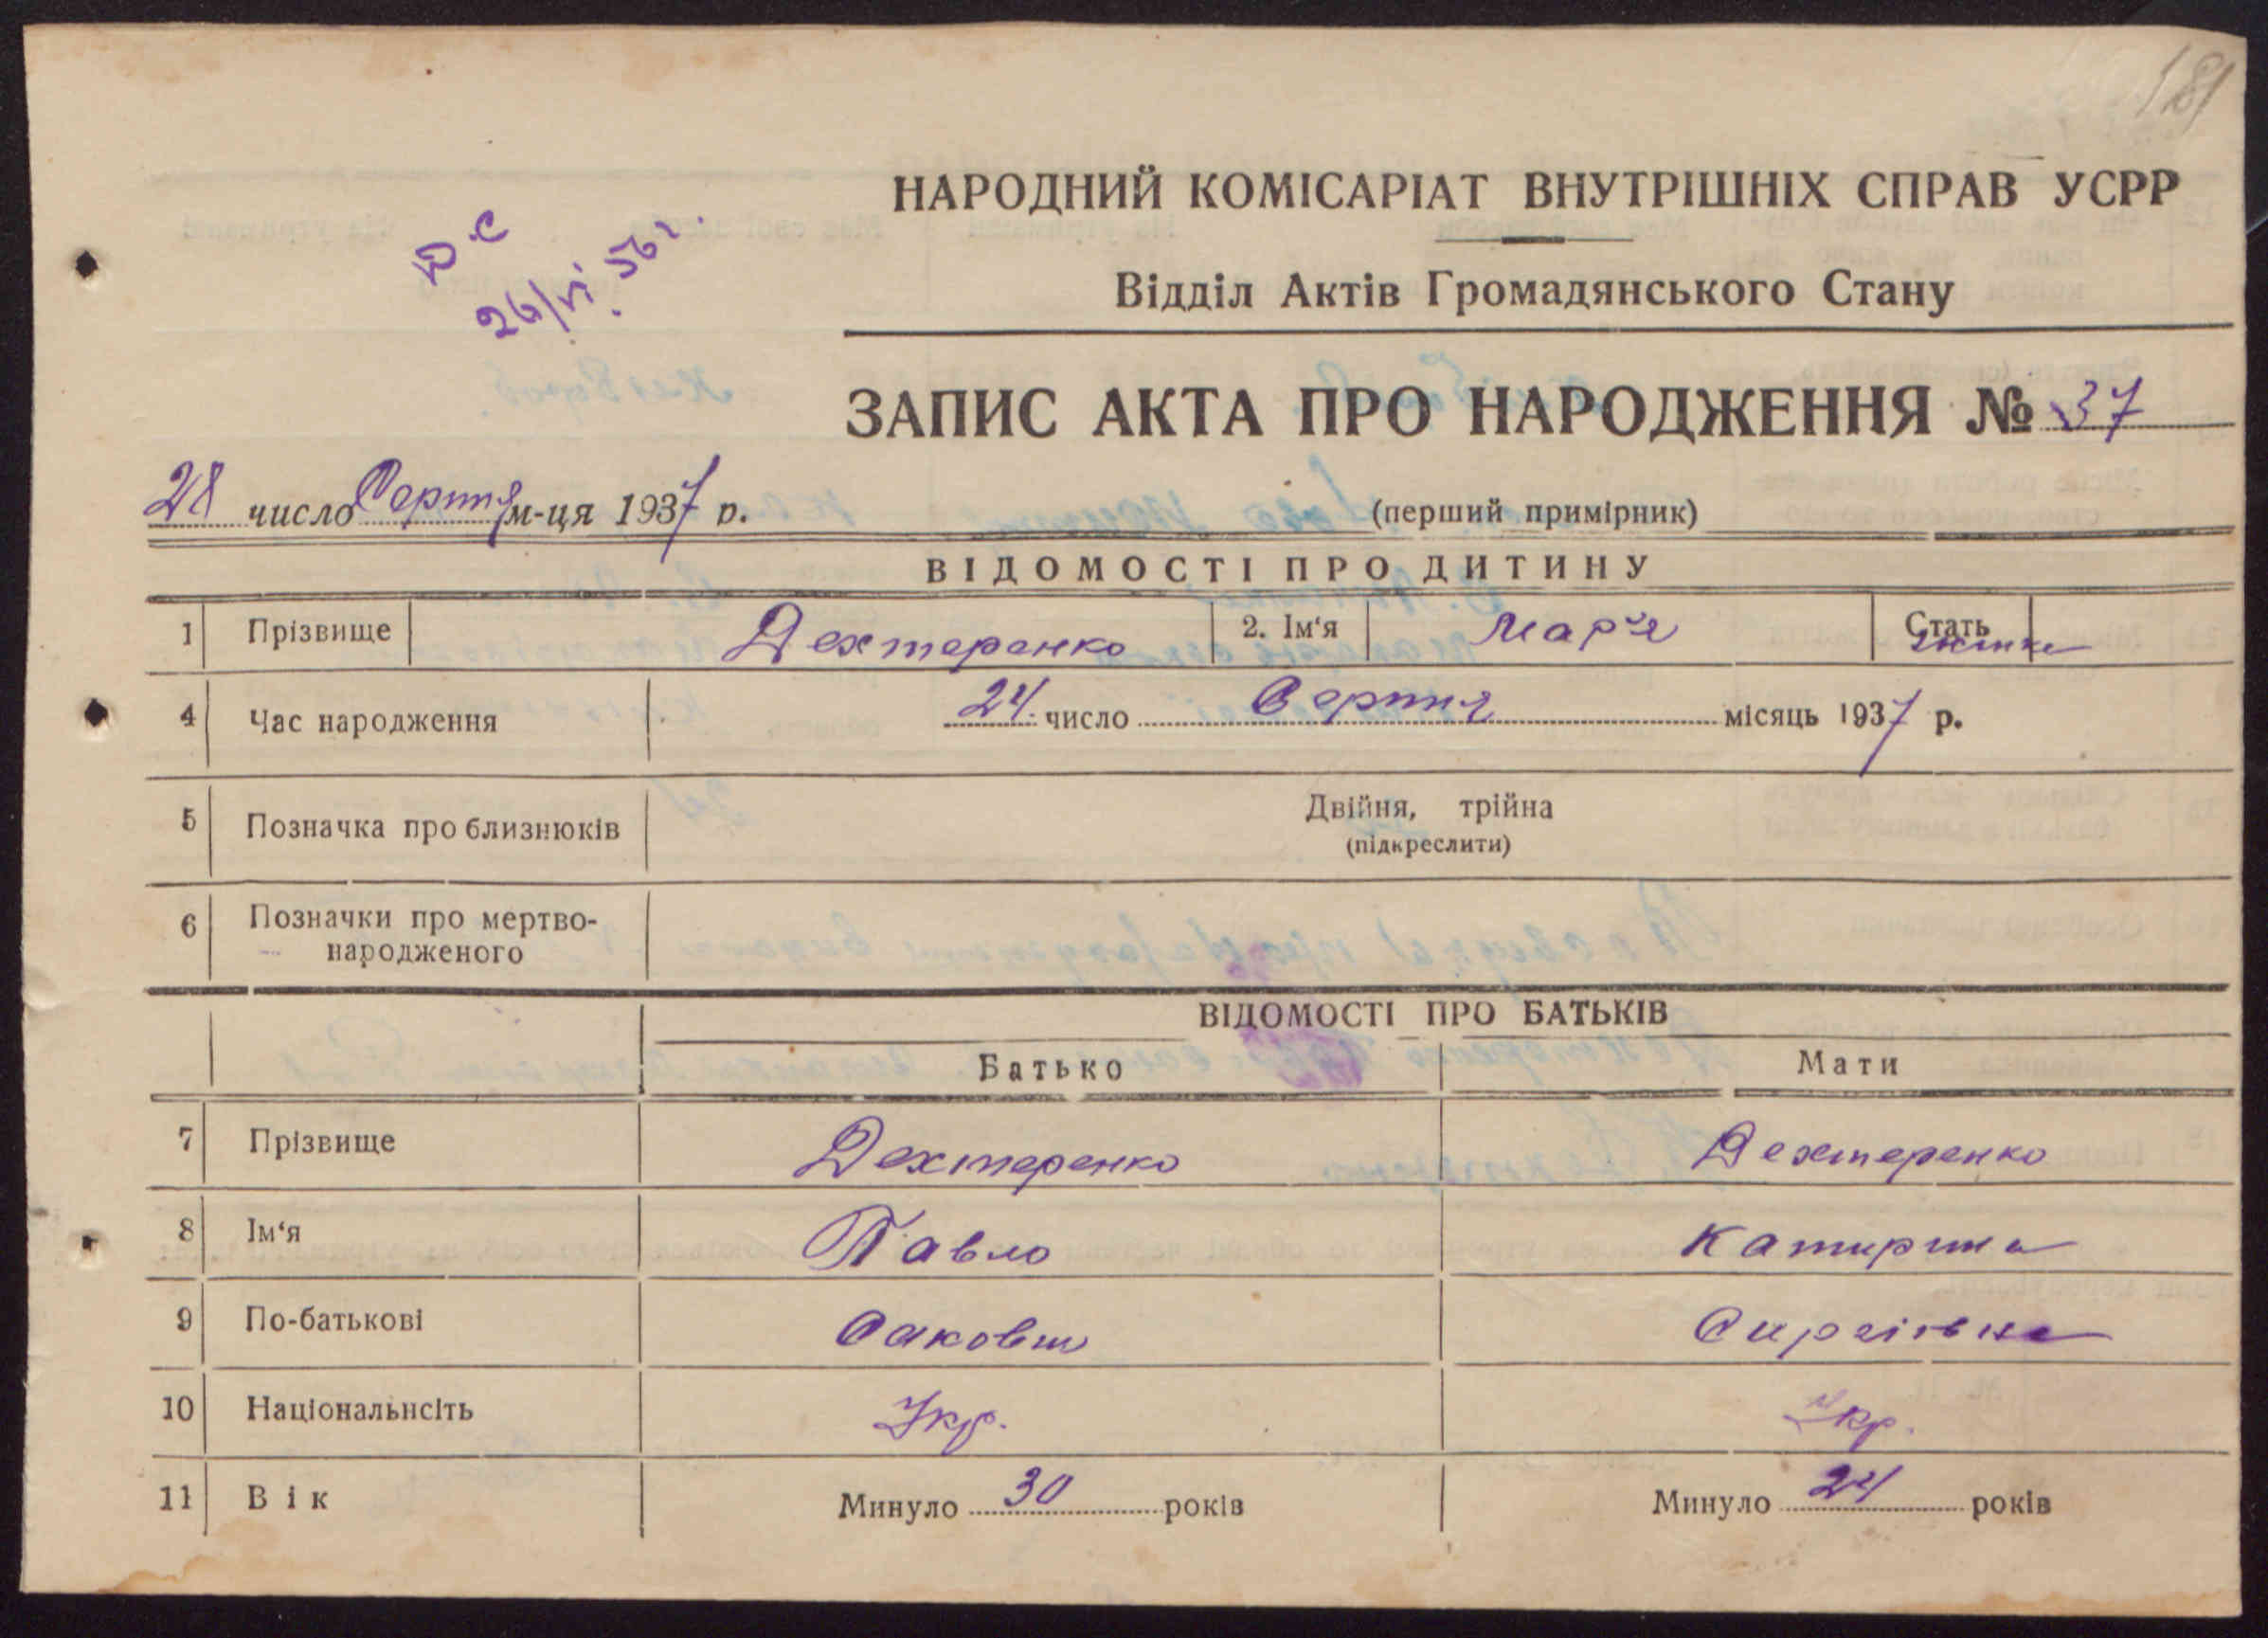 181
НАРОДНИЙ КОМІСАРІАТ ВНУТРІШНІХ СПРАВ УСРР
26/VI 56 г.
Відділ Актів Громадянського Стану
ЗАПИС АКТА ПРО НАРОДЖЕННЯ № 37
28 число Серпня м-ця 1937 р. (перший примірник)
ВІДОМОСТІ ПРО ДИТИНУ
1 Прізвище Дехтеренко 2. Ім'я Мар'я Стать
4 Час народження 24 число Серпня місяць 1937 р.
5 Позначка про близнюків Двійня, трійна
(підкреслити)
6 Позначки про мертво-
народженого
ВІДОМОСТІ ПРО БАТЬКІВ
Батько Мати
7 Прізвище Дехтеренко Дехтеренко
8 Ім'я Павло Катирина
9 По-батькові Саковш Сиргіівна
10 Національнсіть Укр. Укр.
11 Вік Минуло 30 років Минуло 24 років